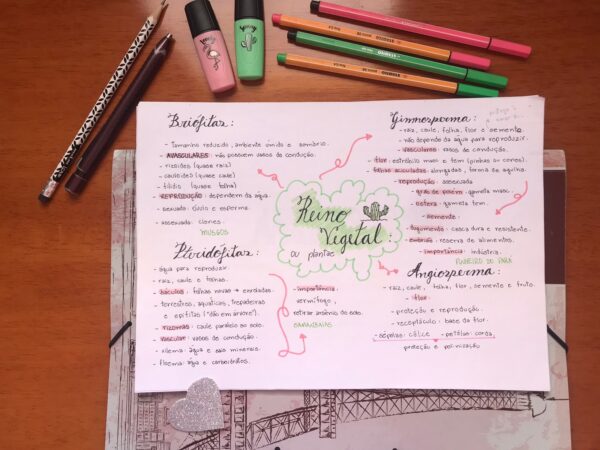 Reino
Vegetal:
ou plantae
Briófitas:
- tamanho reduzido, ambiente úmido e sombrio.
- AVASCULARES: não possuem vasos de condução.
- rizoides (quase raiz)
- cauloides (quase caule)
- filídios (quase folha)
- REPRODUÇÃO: dependem da água.
- sexuada: óvulo e esperma.
- assexuada: clones.
MUSGOS
Pteridófitas:
- água para reproduzir.
- raiz, caule e folhas.
- báculos: folhas novas → enroladas.
- terrestres, aquáticas, trepadeiras
e epífitas ("dão em árvore").
- rizomas: caule paralelo ao solo.
- vascular: vasos de condução.
- xilema: água e sais minerais.
- floema: água e carboidratos.
- importância:
vermífugo,
retirar arsênio do solo.
SAMAMBAIAS
Gimnosperma:
- raiz, caule, folha, flor e semente
- não depende da água para reproduzir.
- vasculares: vasos de condução.
- flor: estróbilo masc e fem (pinhas ou cones).
- folhas aciculadas: alongadas, forma de agulha.
- reprodução: sexuada
- grão de pólen: gameta masc.
- oosfera: gameta fem.
- semente:
- tegumento: casca dura e resistente.
- embrião: reserva de alimentos.
- importância: indústria.
PINHEIRO DO PARANÁ
Angiosperma:
- raiz, caule, folha, flor, semente e fruto.
- flor:
- proteção e reprodução.
- receptáculo: base da flor.
- sépalas: cálice - pétalas: corola,
proteção e polinização